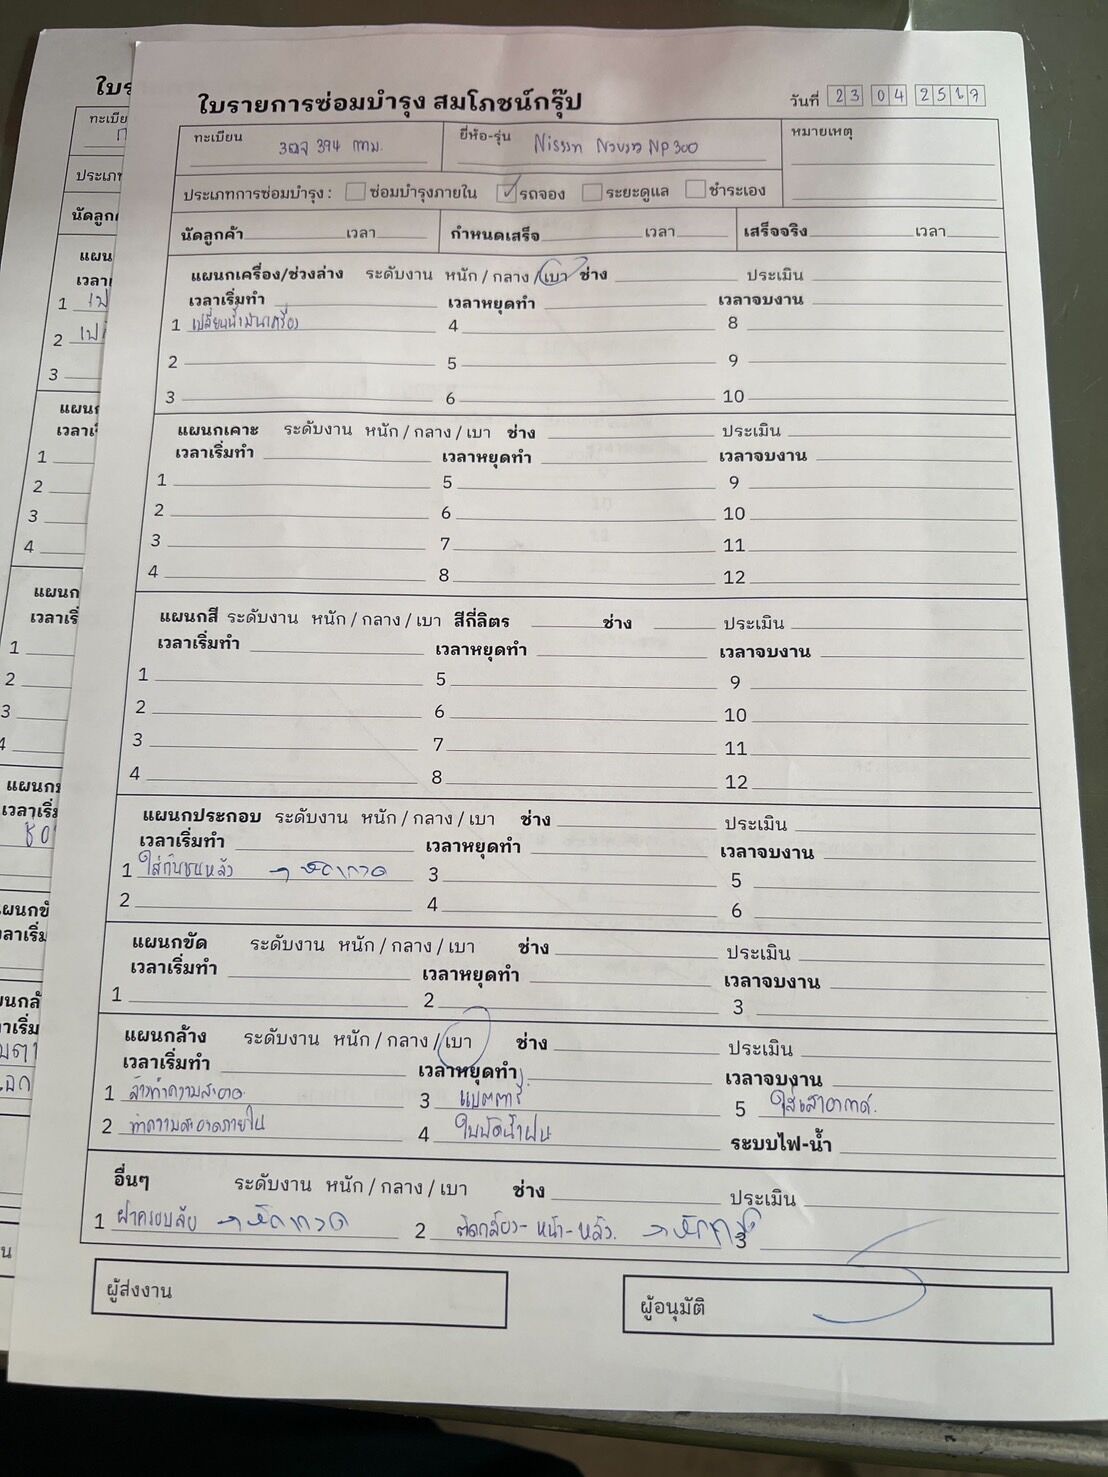 ใบรายการซ่อมบำรุง สมโภชน์กรุ๊ป
วันที่ 23 04 25
ทะเบียน 394 กทม.
ยี่ห้อ-รุ่น Nissan NP300
หมายเหตุ
ประเภทการซ่อมบำรุง : ซ่อมบำรุงภายใน รถจอง ระยะดูแล ชำระเอง
นัดลูกค้า เวลา กำหนดเสร็จ เวลา เสร็จจริง เวลา
แผนกเครื่อง/ช่วงล่าง ระดับงาน หนัก / กลาง / เบา ช่าง ประเมิน
เวลาเริ่มทำ เวลาหยุดทำ เวลาจบงาน
1 เปลี่ยนน้ำมันเครื่อง 4 8
2 5 9
3 6 10
แผนกเคาะ ระดับงาน หนัก / กลาง / เบา ช่าง ประเมิน
เวลาเริ่มทำ เวลาหยุดทำ เวลาจบงาน
1 5 9
2 6 10
3 7 11
4 8 12
แผนกสี ระดับงาน หนัก / กลาง / เบา สีกี่ลิตร ช่าง ประเมิน
เวลาเริ่มทำ เวลาหยุดทำ เวลาจบงาน
1 5 9
2 6 10
3 7 11
4 8 12
แผนกประกอบ ระดับงาน หนัก / กลาง / เบา ช่าง ประเมิน
เวลาเริ่มทำ เวลาหยุดทำ เวลาจบงาน
1 ใส่กันชนหลัง 3 5
2 4 6
แผนกขัด ระดับงาน หนัก / กลาง / เบา ช่าง ประเมิน
เวลาเริ่มทำ เวลาหยุดทำ เวลาจบงาน
1 2 3
แผนกล้าง ระดับงาน หนัก / กลาง / เบา ช่าง ประเมิน
เวลาเริ่มทำ เวลาหยุดทำ เวลาจบงาน
1 ล้างทำความสะอาด 3 แบตตารี่ 5 ใส่เสาอากาศ.
2 ทำความสะอาดภายใน 4 ใบปัดน้ำฝน ระบบไฟ-น้ำ
อื่นๆ ระดับงาน หนัก / กลาง / เบา ช่าง ประเมิน
1 ฝาครอบล้อ 2 ติดกล้อง-หน้า-หลัง. 3
ผู้ส่งงาน
ผู้อนุมัติ